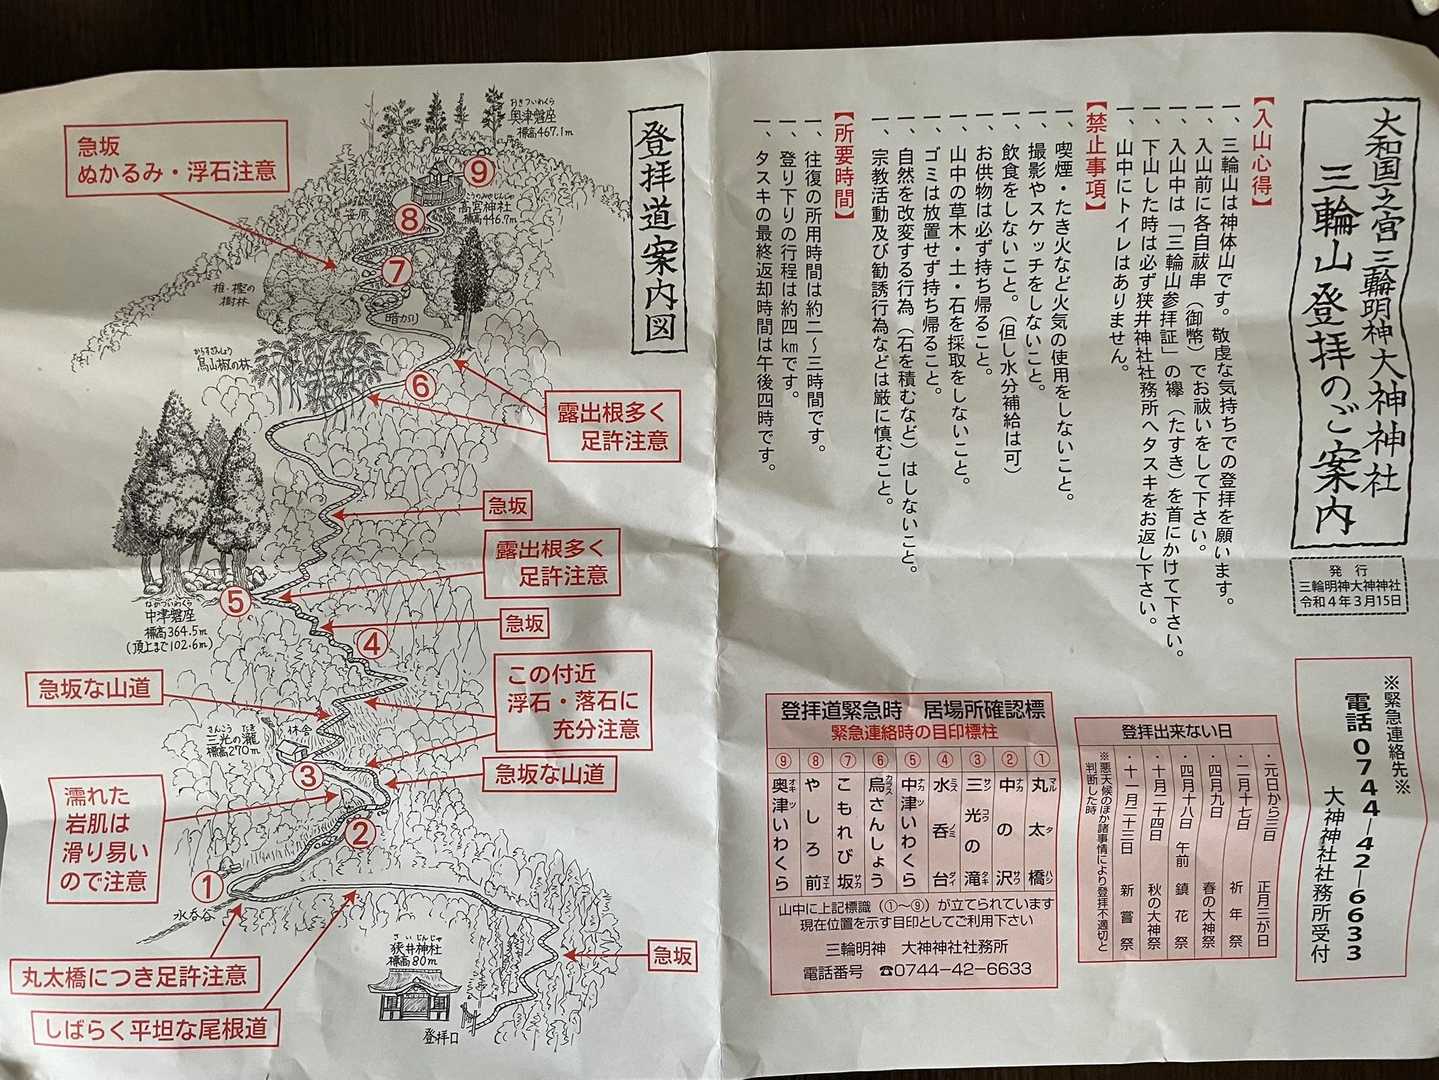 大和国之宮三輪明神大神神社
三輪山登拝のご案内
発行
三輪明神大神神社
令和4年3月15日
【入山心得】
一、三輪山は神体山です。敬虔な気持ちでの登拝を願います。
一、入山前に各自祓串（御幣）でお祓いをして下さい。
一、入山中は「三輪山参拝証」の襷（たすき）を首にかけて下さい。
一、下山した時は必ず狭井神社社務所へタスキをお返し下さい。
一、山中にトイレはありません。
【禁止事項】
一、喫煙・たき火など火気の使用をしないこと。
一、撮影やスケッチをしないこと。
一、飲食をしないこと。（但し水分補給は可）
一、お供物は必ず持ち帰ること。
一、山中の草木・土・石を採取をしないこと。
一、ゴミは放置せず持ち帰ること。
一、自然を改変する行為（石を積むなど）はしないこと。
一、宗教活動及び勧誘行為などは厳に慎むこと。
【所要時間】
一、往復の所用時間は約二～三時間です。
一、登り下りの行程は約四㎞です。
一、タスキの最終返却時間は午後四時です。
※緊急連絡先※
電話0744-42-6633
大神神社社務所受付
登拝出来ない日
・元日から三日 正月三が日
・二月十七日 祈年祭
・四月九日 春の大神祭
・四月十八日 午前 鎮花祭
・十月二十四日 秋の大神祭
・十一月二十三日 新嘗祭
※悪天候のほか諸事情により登拝不適切と
判断した時
登拝道緊急時 居場所確認標
緊急連絡時の目印標柱
① 丸太橋 マルタハシ
② 中の沢 ナカサワ
③ 三光の滝 サンコウタキ
④ 水呑台 ミズノミダイ
⑤ 中津いわくら ナカツ
⑥ 烏さんしょう カラス
⑦ こもれび坂 サカ
⑧ やしろ前 マエ
⑨ 奥津いわくら オキツ
山中に上記標識（①～⑨）が立てられています
現在位置を示す目印としてご利用下さい
三輪明神 大神神社社務所
電話番号 ☎0744-42-6633
登拝道案内図
おきついわくら
奥津磐座
標高467.1m
⑨
急坂
ぬかるみ・浮石注意
こうのみやじんじゃ
高宮神社
標高446.7m
笹原
⑧
⑦
椎・樫の
樹林
暗がり
からすざんしょう
烏山椒の林
⑥
露出根多く
足許注意
急坂
露出根多く
足許注意
⑤
なかついわくら
中津磐座
標高364.5m
(頂上まで102.6m)
急坂
④
この付近
浮石・落石に
充分注意
急坂な山道
さんこう たき
三光の瀧
標高270m
休舎
③
急坂な山道
濡れた
岩肌は
滑り易い
ので注意
②
①
水呑谷
丸太橋につき足許注意
しばらく平坦な尾根道
さいじんじゃ
狭井神社
標高80m
急坂
登拝口